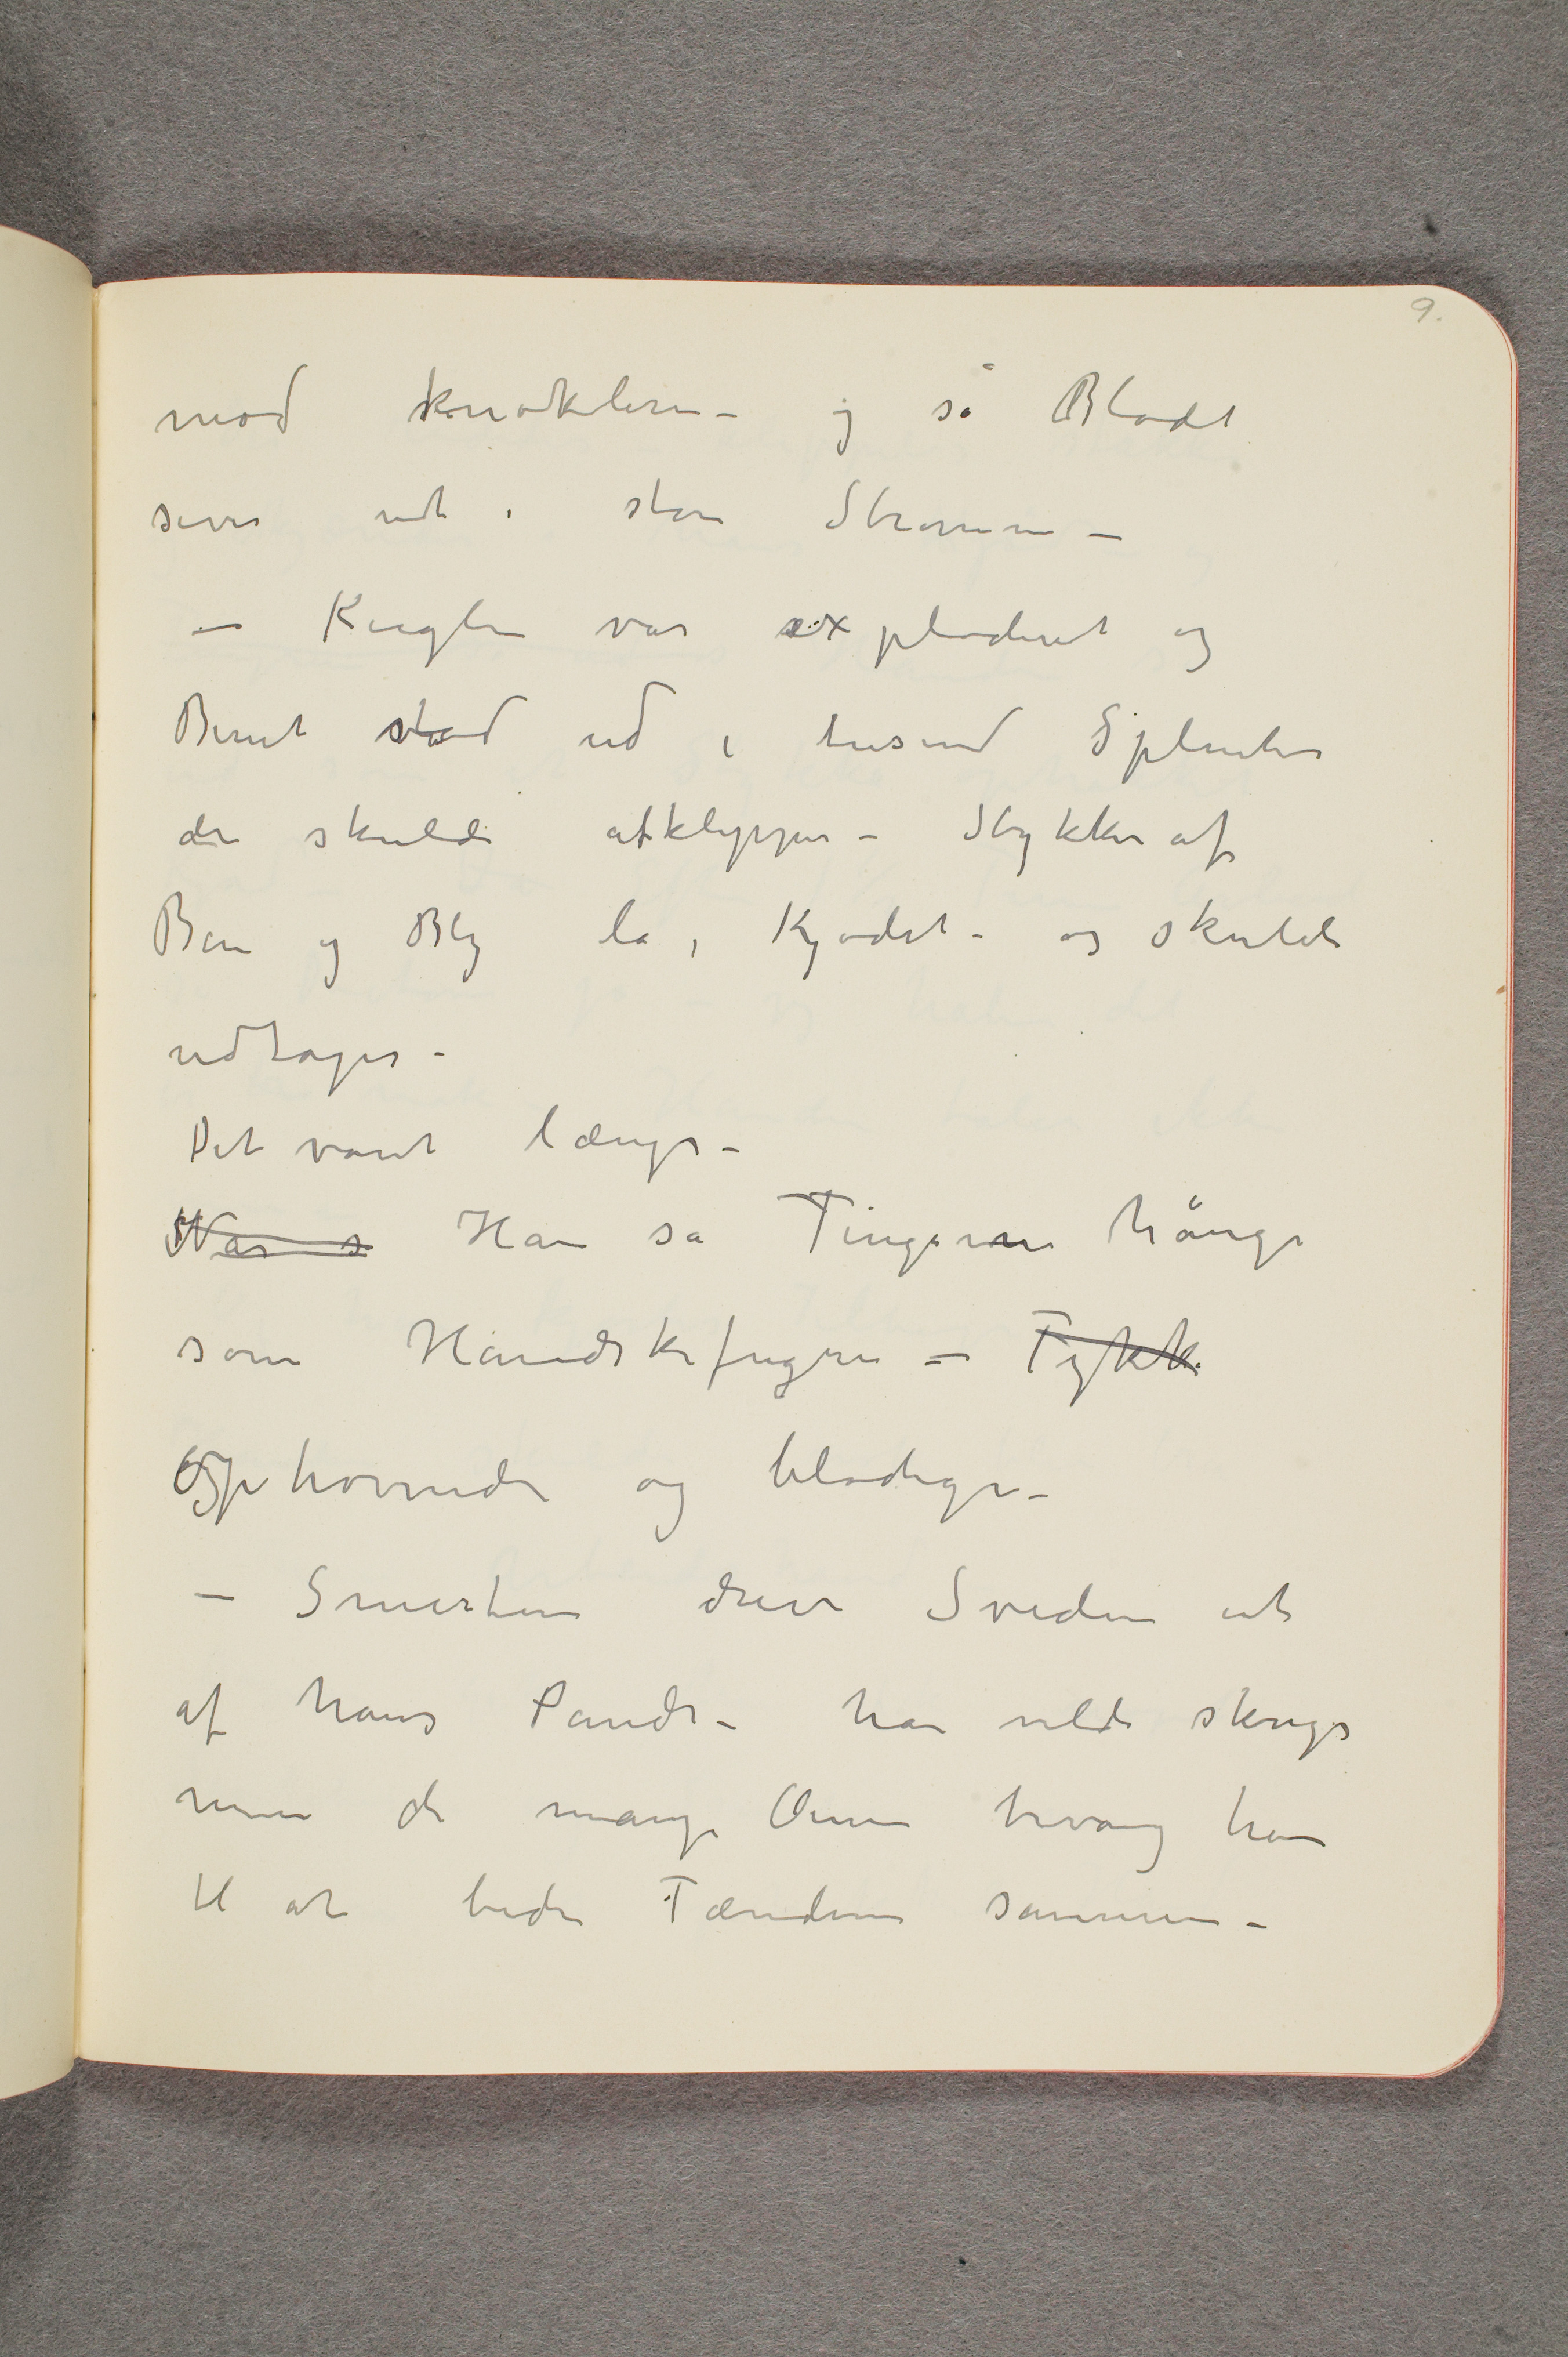 9.
mod knoklerne – og så Blodet
siver ud i store Strømme –
– Kuglen var exploderet og
Benet stod ud i tusend Splinter
der skulde afklippes – Stykker af
Ben og Bly lå i Kjødet – og skulde
udtages –
Det varet længe –
Når s Han så Fingerne hänge
som Handskefingre – Tykk
Ophovnede og blodige –
– Smerten drev Sveden ut
af hans Pande – han vilde skrige
men de mange Øine tvang ham
til at bide Tænderne sammen –